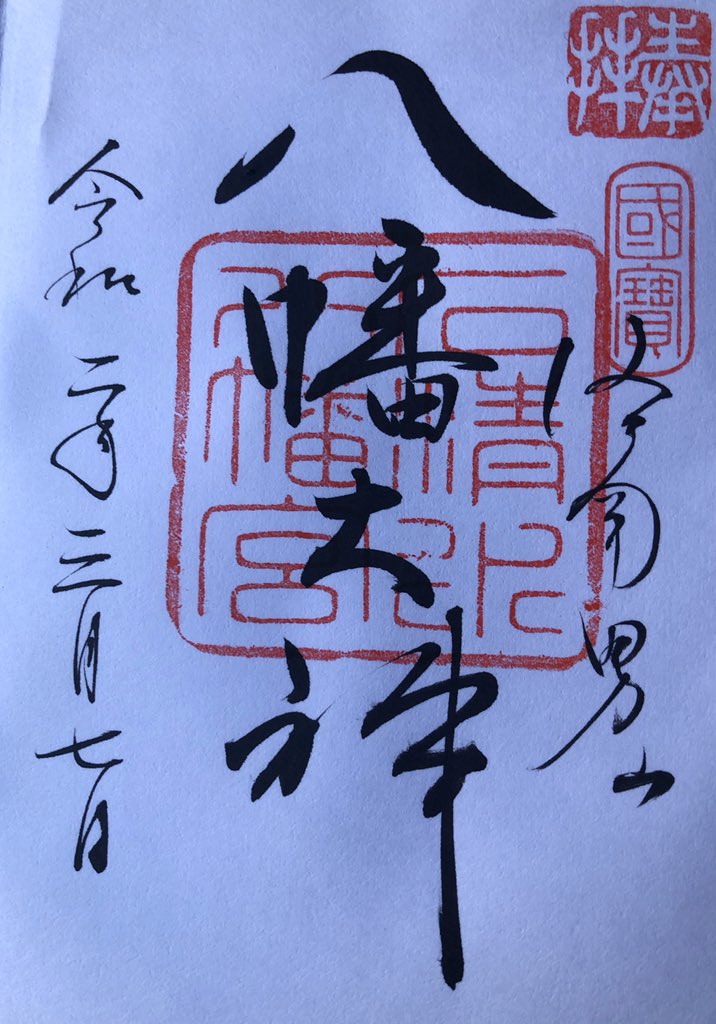 奉拝
國寶
洛南男山
八幡大神
石清水
八幡宮
令和二年三月七日